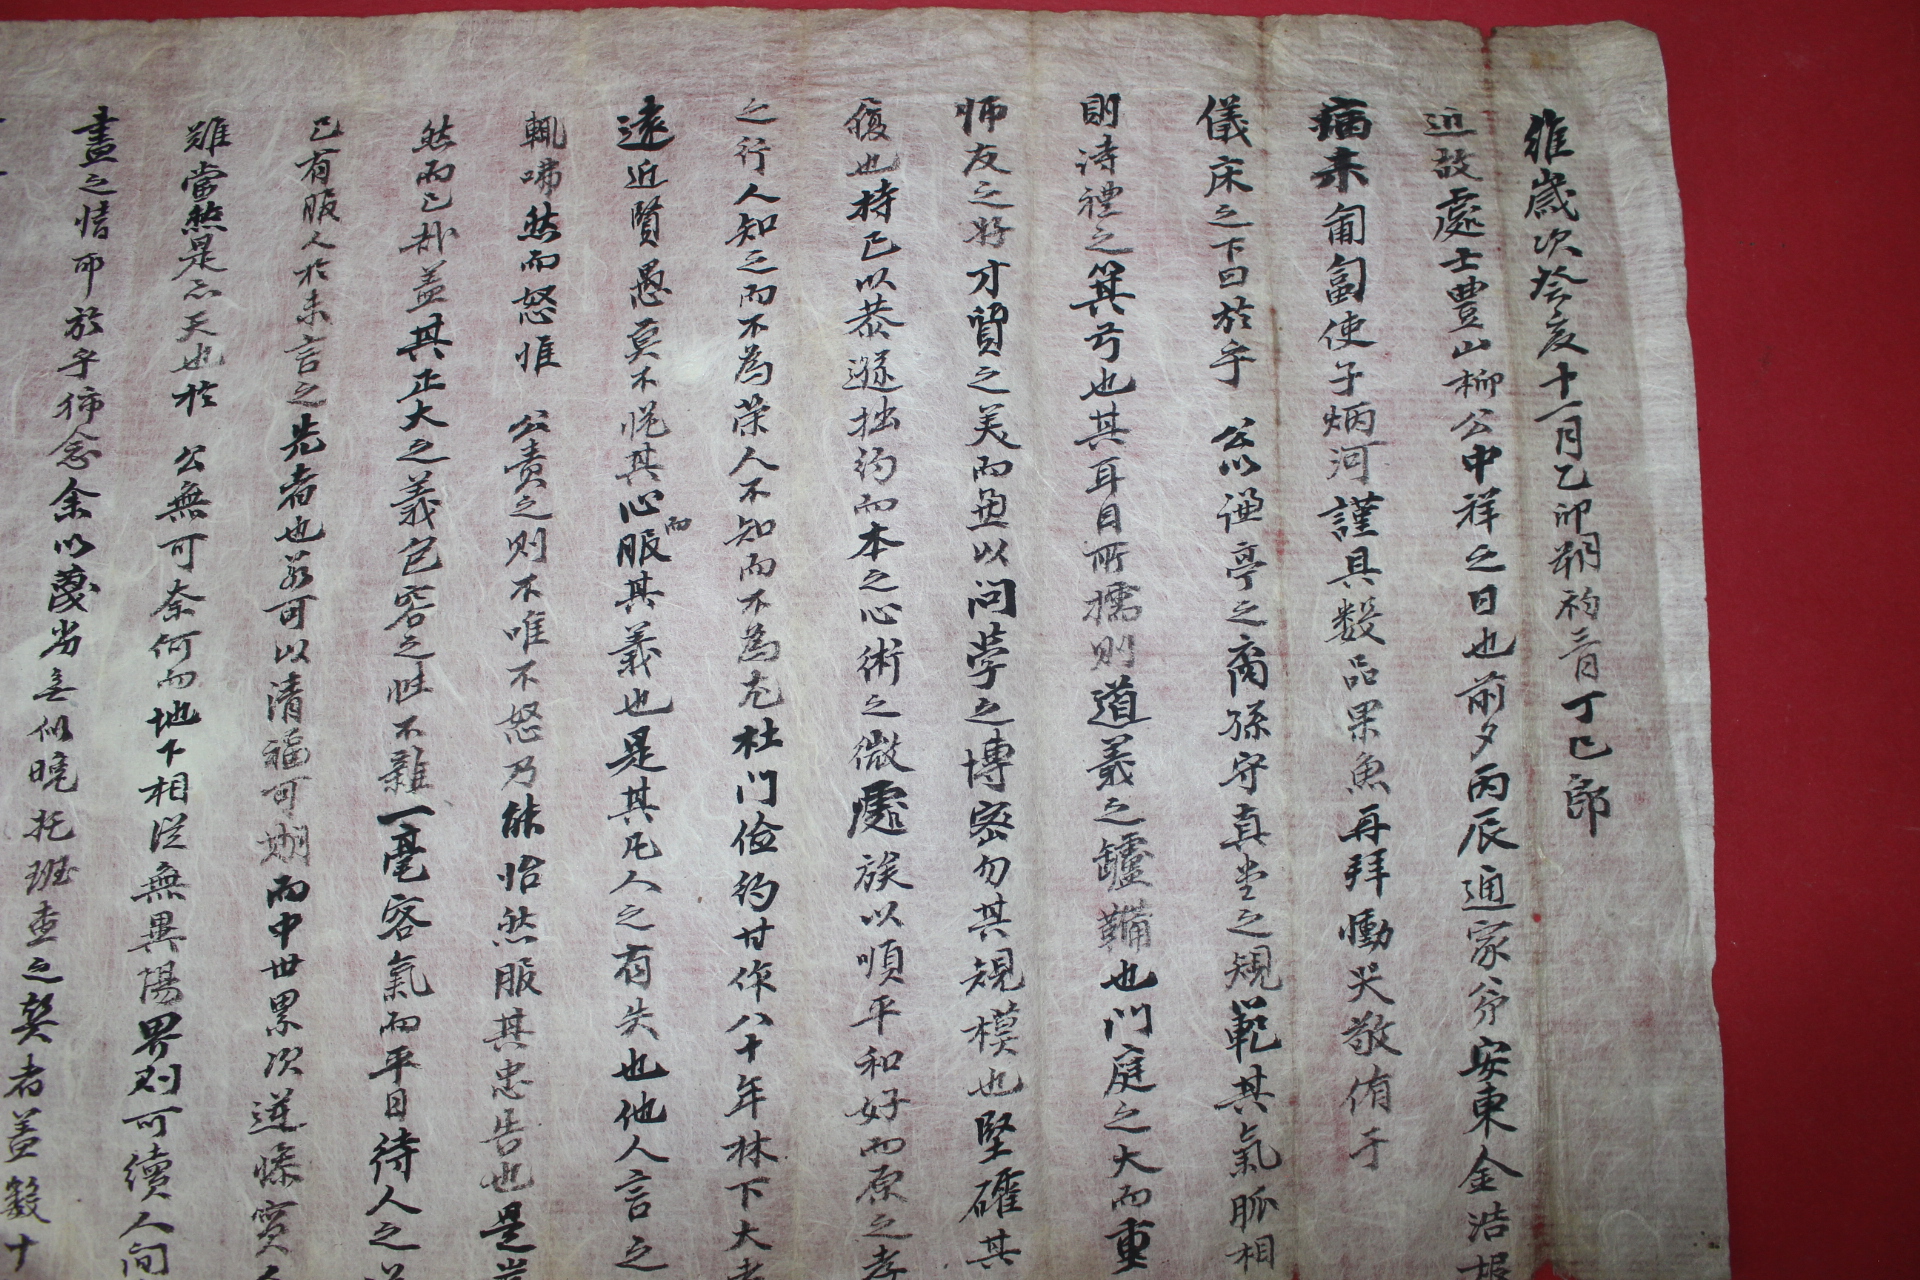 維歲次癸亥十一月乙卯朔初三日丁巳郎
近故處士豊山柳公中祥之日也前夕丙辰通家安東金浩根
病未匍匐使子炳河謹具數品果魚再拜慟哭敬侑于
儀床之下曰於乎 公以謙亭之裔孫守真堂之規範其氣脈相
則詩禮之箕弓也其耳目所擩則道義之鑪鞴也門庭之大而重
師友之好才質之美而兼以問學之博密勿其規模也堅確其
履也持己以恭遜拙約而本之心術之微處族以順平和好而原之孝
之行人知之而不為榮人不知而不為尤杜門儉約甘作八十年林下大老
遠近賢愚莫不悅其心而服其義也是其凡人之有失也他人言之
輒咈然而怒惟 公責之則不唯不怒乃能怡然服其忠告也是豈
然而已哉盖其正大之義包容之性不雜一毫客氣而平日待人之道
已有服人於未言之先者也若可以清福可期而中世累次逆慘實人
雖當然是亦天也於 公無可奈何而地下相從無異陽界則可續人間
晝之情耶於乎痛念余以蔑劣無似晚托班查之契者盖數十